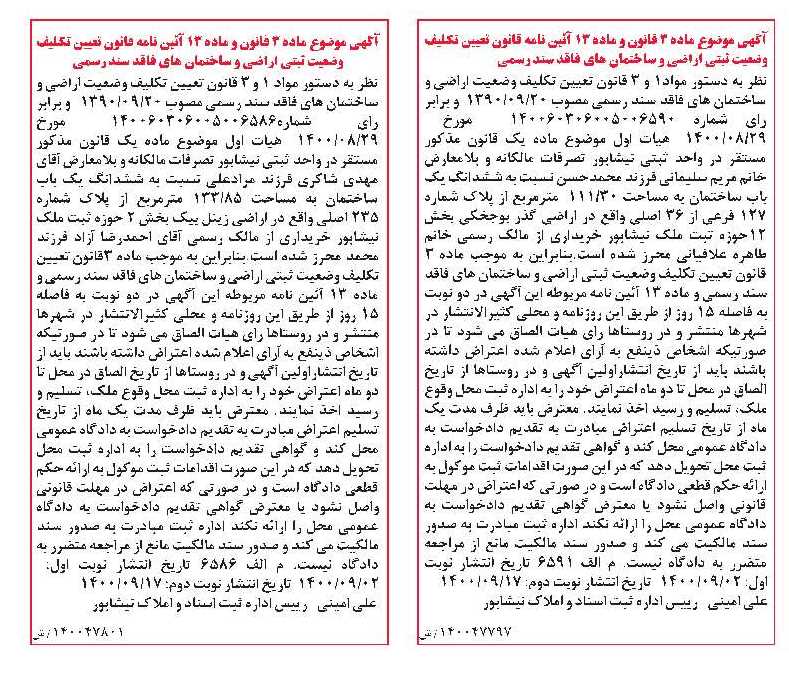 آگهی موضوع ماده ۳ قانون و ماده ۱۳ آئین نامه قانون تعیین تکلیف
وضعیت ثبتی اراضی و ساختمان های فاقد سند رسمی
نظر به دستور مواد۱ و ۳ قانون تعیین تکلیف وضعیت ثبتی اراضی و
ساختمان های فاقد سند رسمی مصوب ۱۳۹۰/۰۹/۲۰ و برابر
رای شماره ۱۴۰۰۶۰۳۰۶۰۰۵۰۰۶۵۹۰ مورخ
۱۴۰۰/۰۸/۲۹ هیات اول موضوع ماده یک قانون مذکور
مستقر در واحد ثبتی نیشابور تصرفات مالکانه و بلامعارض
خانم مریم سلیمانی فرزند محمدحسن نسبت به ششدانگ یک
باب ساختمان به مساحت ۱۱۱/۳۰ مترمربع از پلاک شماره
۱۲۷ فرعی از ۳۶ اصلی واقع در اراضی گذر بوجخکی بخش
۱۲حوزه ثبت ملک نیشابور خریداری از مالک رسمی خانم
طاهره علافیانی محرز شده است.بنابراین به موجب ماده ۳
قانون تعیین تکلیف وضعیت ثبتی اراضی و ساختمان های فاقد
سند رسمی و ماده ۱۳ آئین نامه مربوطه این آگهی در دو نوبت
به فاصله ۱۵ روز از طریق این روزنامه و محلی کثیرالانتشار در
شهرها منتشر و در روستاها رای هیات الصاق می شود تا در
صورتیکه اشخاص ذینفع به آرای اعلام شده اعتراض داشته
باشند باید از تاریخ انتشاراولین آگهی و در روستاها از تاریخ
الصاق در محل تا دو ماه اعتراض خود را به اداره ثبت محل وقوع
ملک، تسلیم و رسید اخذ نمایند. معترض باید ظرف مدت یک
ماه از تاریخ تسلیم اعتراض مبادرت به تقدیم دادخواست به
دادگاه عمومی محل کند و گواهی تقدیم دادخواست را به اداره
ثبت محل تحویل دهد که در این صورت اقدامات ثبت موکول به
ارائه حکم قطعی دادگاه است و در صورتی که اعتراض در مهلت
قانونی واصل نشود یا معترض گواهی تقدیم دادخواست به
دادگاه عمومی محل را ارائه نکند اداره ثبت مبادرت به صدور
سند مالکیت می کند و صدور سند مالکیت مانع از مراجعه
متضرر به دادگاه نیست. م الف ۶۵۹۱ تاریخ انتشار نوبت
اول: ۱۴۰۰/۰۹/۰۲ تاریخ انتشار نوبت دوم: ۱۴۰۰/۰۹/۱۷
علی امینی رییس اداره ثبت اسناد و املاک نیشابور
۱۴۰۰۴۷۷۹۷/ش
آگهی موضوع ماده ۳ قانون و ماده ۱۳ آئین نامه قانون تعیین تکلیف
وضعیت ثبتی اراضی و ساختمان های فاقد سند رسمی
نظر به دستور مواد ۱ و ۳ قانون تعیین تکلیف وضعیت ثبتی اراضی و
ساختمان های فاقد سند رسمی مصوب ۱۳۹۰/۰۹/۲۰ و برابر
رای شماره۱۴۰۰۶۰۳۰۶۰۰۵۰۰۶۵۸۶ مورخ
۱۴۰۰/۰۸/۲۹ هیات اول موضوع ماده یک قانون مذکور
مستقر در واحد ثبتی نیشابور تصرفات مالکانه و بلامعارض آقای
مهدی شاکری فرزند مرادعلی نسبت به ششدانگ یک باب
ساختمان به مساحت ۱۳۳/۸۵ مترمربع از پلاک شماره
۲۳۵ اصلی واقع در اراضی زینل بیک بخش ۲ حوزه ثبت ملک
نیشابور خریداری از مالک رسمی آقای احمدرضا آزاد فرزند
محمد محرز شده است.بنابراین به موجب ماده ۳قانون تعیین
تکلیف وضعیت ثبتی اراضی و ساختمان های فاقد سند رسمی و
ماده ۱۳ آئین نامه مربوطه این آگهی در دو نوبت به فاصله
۱۵ روز از طریق این روزنامه و محلی کثیرالانتشار در شهرها
منتشر و در روستاها رای هیات الصاق می شود تا در صورتیکه
اشخاص ذینفع به آرای اعلام شده اعتراض داشته باشند باید از
تاریخ انتشاراولین آگهی و در روستاها از تاریخ الصاق در محل تا
دو ماه اعتراض خود را به اداره ثبت محل وقوع ملک، تسلیم و
رسید اخذ نمایند. معترض باید ظرف مدت یک ماه از تاریخ
تسلیم اعتراض مبادرت به تقدیم دادخواست به دادگاه عمومی
محل کند و گواهی تقدیم دادخواست را به اداره ثبت محل
تحویل دهد که در این صورت اقدامات ثبت موکول به ارائه حکم
قطعی دادگاه است و در صورتی که اعتراض در مهلت قانونی
واصل نشود یا معترض گواهی تقدیم دادخواست به دادگاه
عمومی محل را ارائه نکند اداره ثبت مبادرت به صدور سند
مالکیت می کند و صدور سند مالکیت مانع از مراجعه متضرر به
دادگاه نیست. م الف ۶۵۸۶ تاریخ انتشار نوبت اول:
۱۴۰۰/۰۹/۰۲ تاریخ انتشار نوبت دوم: ۱۴۰۰/۰۹/۱۷
علی امینی رییس اداره ثبت اسناد و املاک نیشابور
۱۴۰۰۴۷۸۰۱/ش